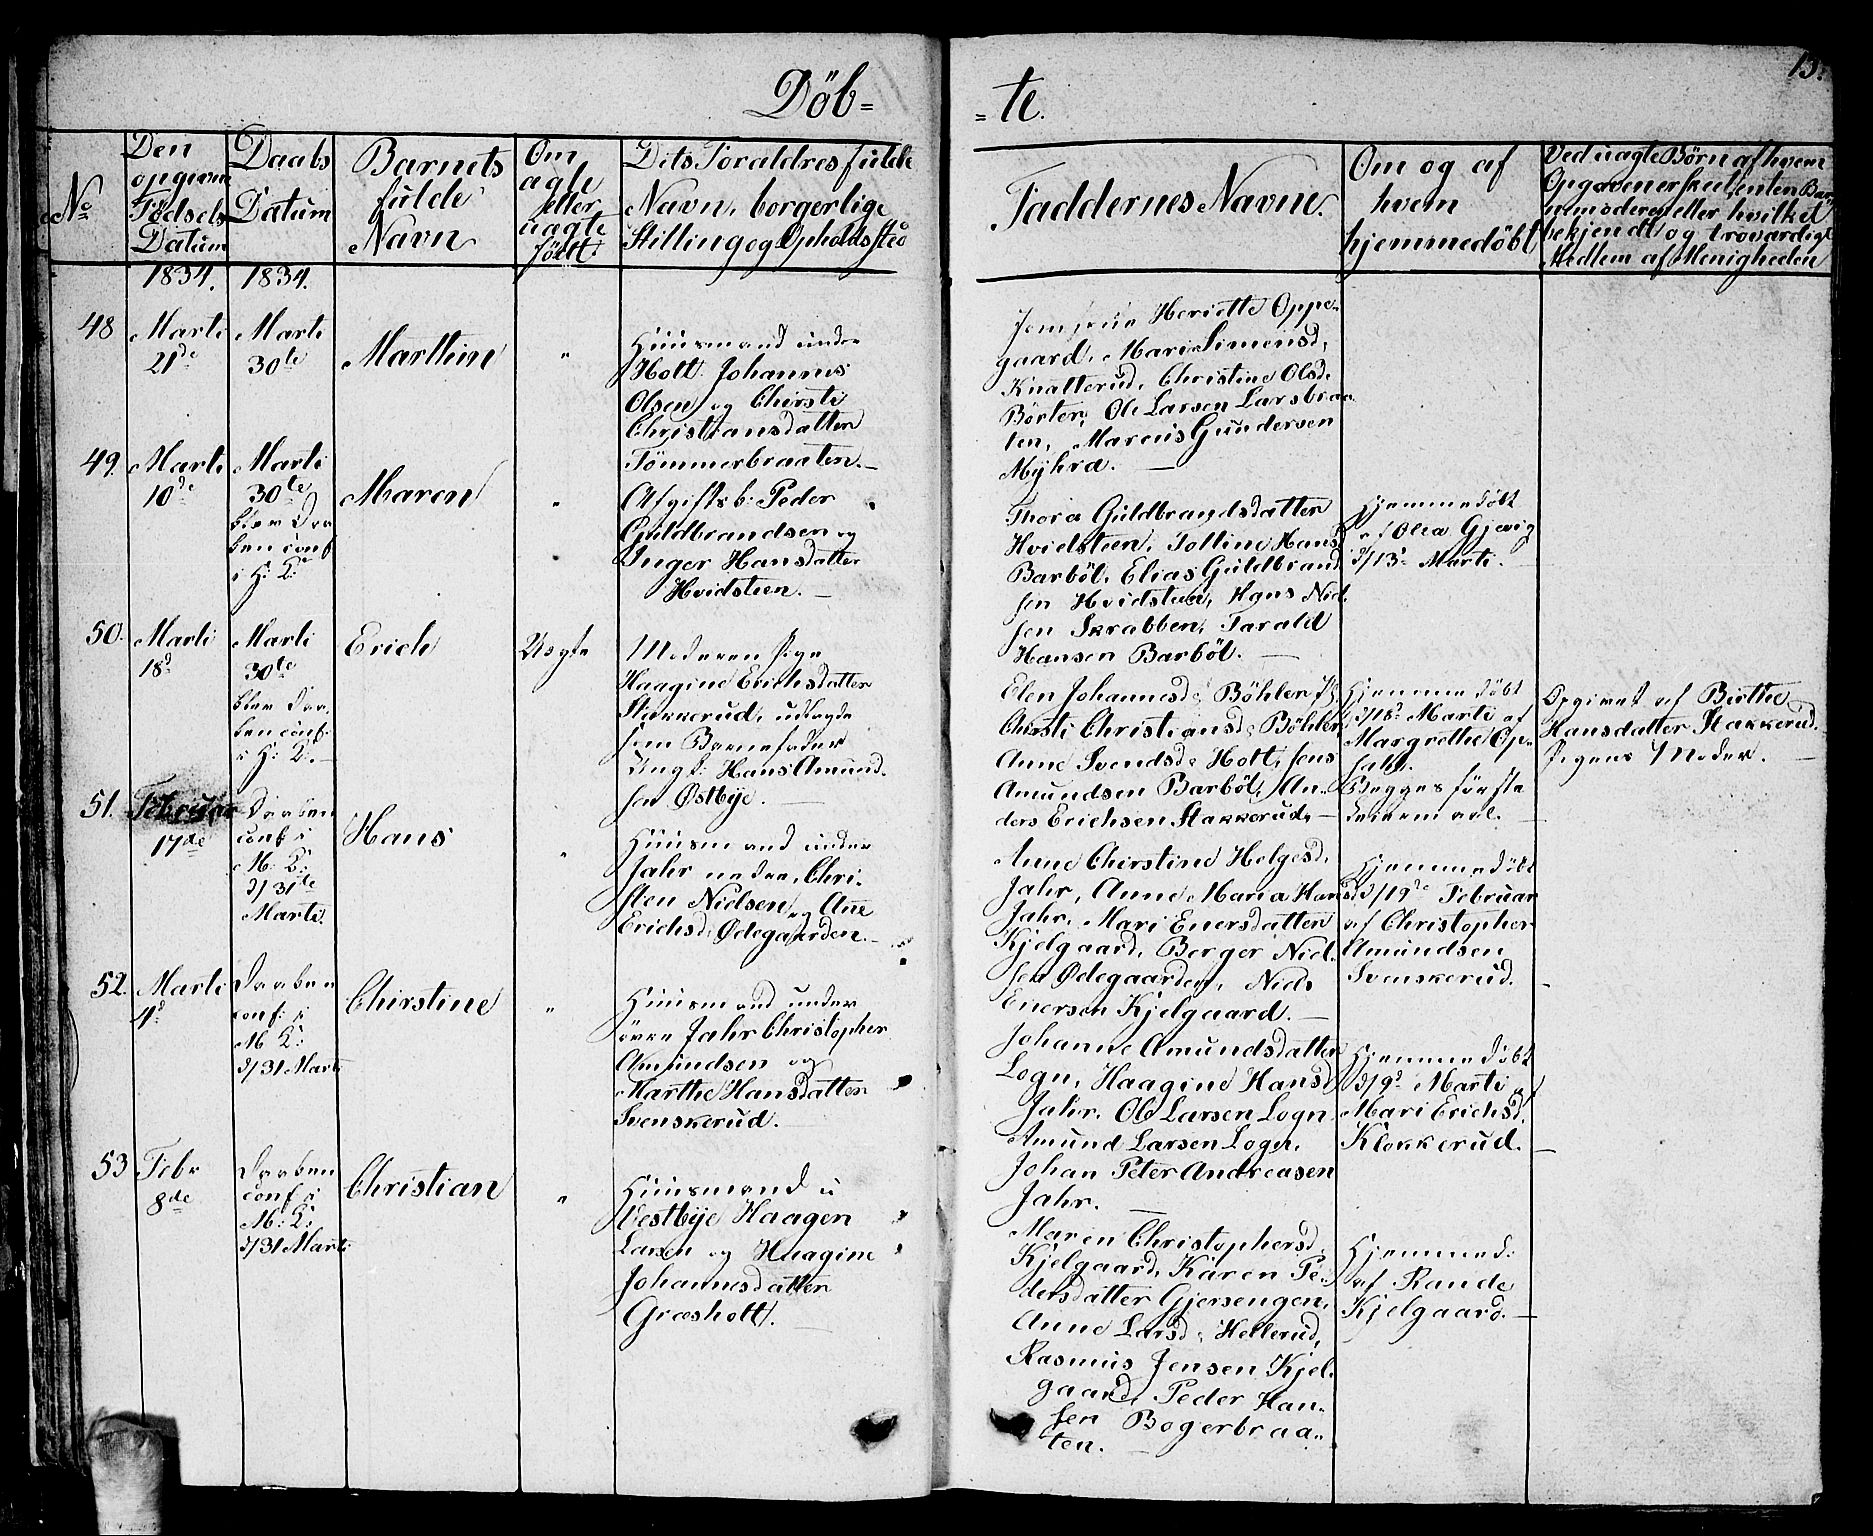 Döb=
=te.
13.
No
Den opgivne Fødsels Datum
Daabs Datum
Barnets fulde Navn
Om ægte eller uægte født.
Dets Foræld​res fulde Navn, borgerlige Stilling og Opholdssted
Faddernes Navne.
Om og af hvem hjemmedöbt
Ved uægte Børn af hvem
Opgaven er skeet, enten Bar-
nmoderen eller hvilket
bekjendt og troværdigt
Medlem af Menigheden
1834.
1834.
48
Marti
21de
Marti
30te
Marthine
"
Huusmand under
Holt Johannes
Olsen og Chirsti
Christiansdatter
Tömmerbraaten.
Jomfrue Heriette Oppe-
gaard, Mari Simensd,
Knatterud, Christine Olsd.
Börter, Ole Larsen Larsbraa-
ten, Marcus Gundersen
Myhra.
49.
Marti
10de
Marti
30te
blev Daa-
ben conf
i H: K:
Maren
"
Afgiftsb: Peder
Guldbrandsen og
Inger Hansdatter
Hvidsteen.
Thora Guldbrandsdatter
Hvidsteen, Tolline Hans
Barböl, Elias Guldbrand
sen Hvidsteen, Hans Niel-
sen Skrabben, Tarald
Hansen Barböl.
Hjemmedöbt
af Olea Gjevig
d/13: Marti.
50.
Marti
18d
Marti
30te
blev Daa-
ben conf.
i H: K:
Erich
Uægte
Moderen Pige
Haagine Erichsdatter
Stakkerud, udlagde
som Barnefader
Ungk: Hans Amund-
sen Østbye.
Elen Johannesd: Böhler
Chirsti Christiansd: Böhler
Anne Svendsd: Holt, Jens
Amundsen Barböl, An-
ders Erichsen Stakkerud.
Hjemmedöbt
d/18d Marti af
Margrethe Op-
sahl.
Begges förste
Leiermaal.
Opgivet af Birthe
Hansdatter Stakkerud.
Pigens Moder.
51.
Februar
17de
Daaben
conf i
M: K:
d/31te
Marti.
Hans
"
Huusmand under
Jahr nedre, Chri-
sten Nielsen og Ane
Erichsd: Ødegaarden.
Anne Chirstine Helgesd.
Jahr, Anne Maria Hansd.
Jahr, Mari Enersdatter
Kjelgaard, Berger Niel-
sen Ødegaarden, Niels
Enersen Kjelgaard.
Hjemmedöbt
d/19de Februar
af Christopher
Amundsen
Svenskerud.
52.
Marti
Daaben
conf: i
M K:
d/31 Marti
Chirstine
"
Huusmand under
övre Jahr Christopher
Amundsen og
Marthe Hansdatter
Svenskerud.
Johanne Amundsdatter
Logn, Haagine Hansd
Jahr, Ole Larsen Logn
Amund Larsen Logn,
Johan Peter Andreasen
Jahr.
Hjemmedöbt
d/9d Marti af
Mari Erichsd.
Klokkerud.
53
Febr
8de
Daaben
conf i
M: K:
d/31 Marti
Christian
"
Huusmand u
Vestbye Haagen
Larsen og Haagine
Johannesdatter
Græsholt.
Maren Christophersd.
Kjelgaard, Karen Pe-
dersdatter Gjersengen,
Anne Larsd: Hellerud,
Rasmus Jensen Kjel-
gaard, Peder Han-
sen Bogerbraa-
ten.
Hjemmed:
af Rande
Kjelgaard.